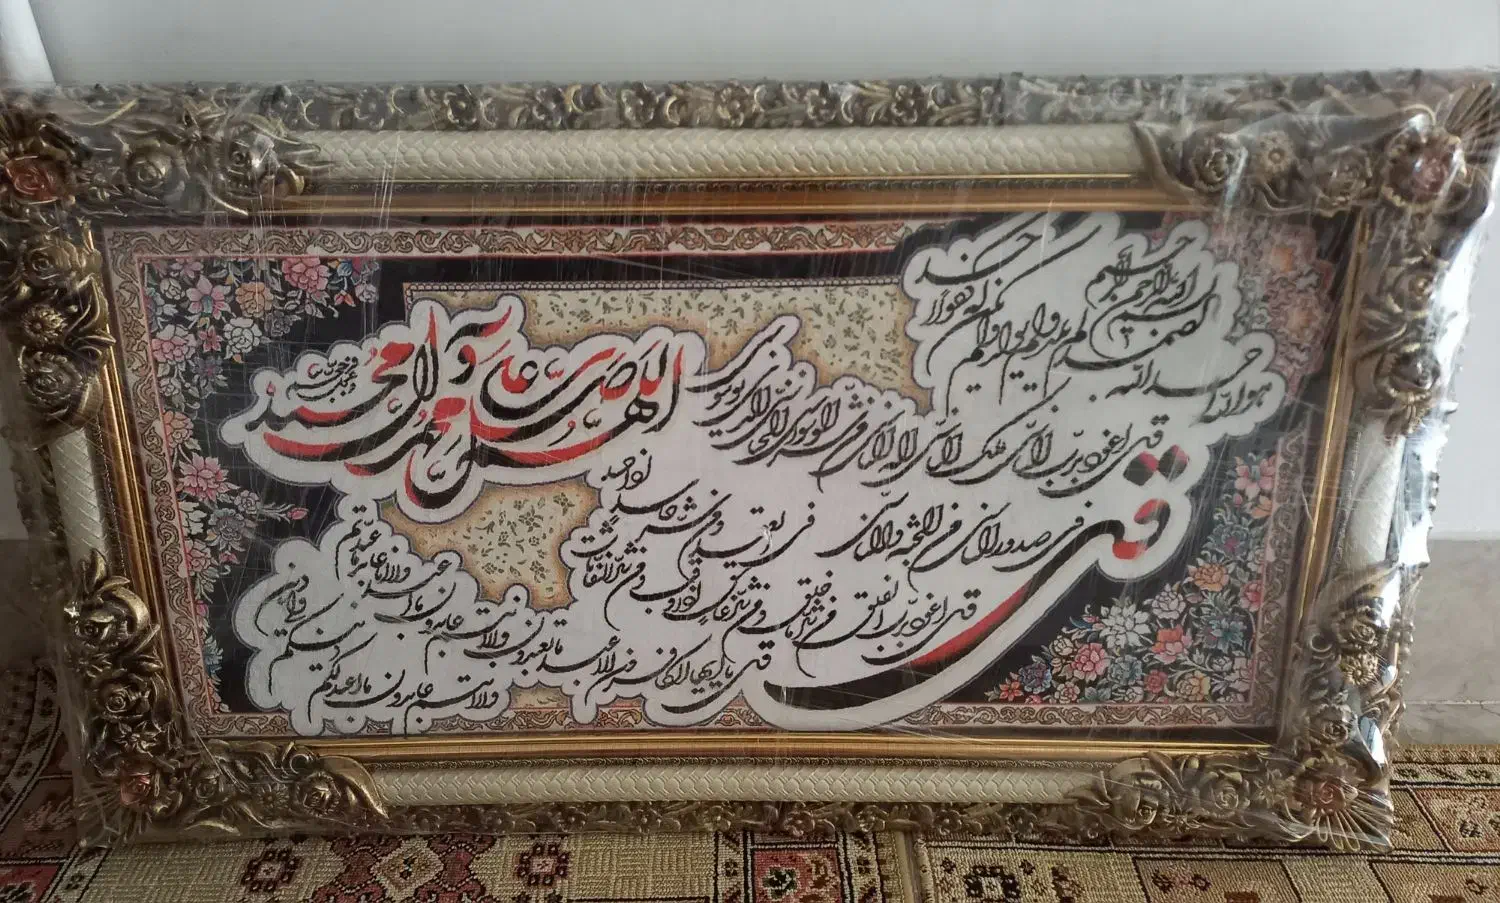 بسم الله الرحمن الرحیم
قل
هو الله احد الله الصمد لم یلد و لم یولد و لم یکن له کفوا احد
قل اعوذ برب الناس ملک الناس اله الناس من شر الوسواس الخناس الذی یوسوس
فی صدور الناس من الجنة و الناس
قل اعوذ برب الفلق من شر ما خلق و من شر غاسق اذا وقب و من شر النفاثات
فی العقد و من شر حاسد اذا حسد
قل یا ایها الکافرون لا اعبد ما تعبدون و لا انتم عابدون ما اعبد و لا انا عابد ما عبدتم
و لا انتم عابدون ما اعبد لکم دینکم ولی دین
اللهم صل علی محمد و آل محمد
و عجل فرجهم